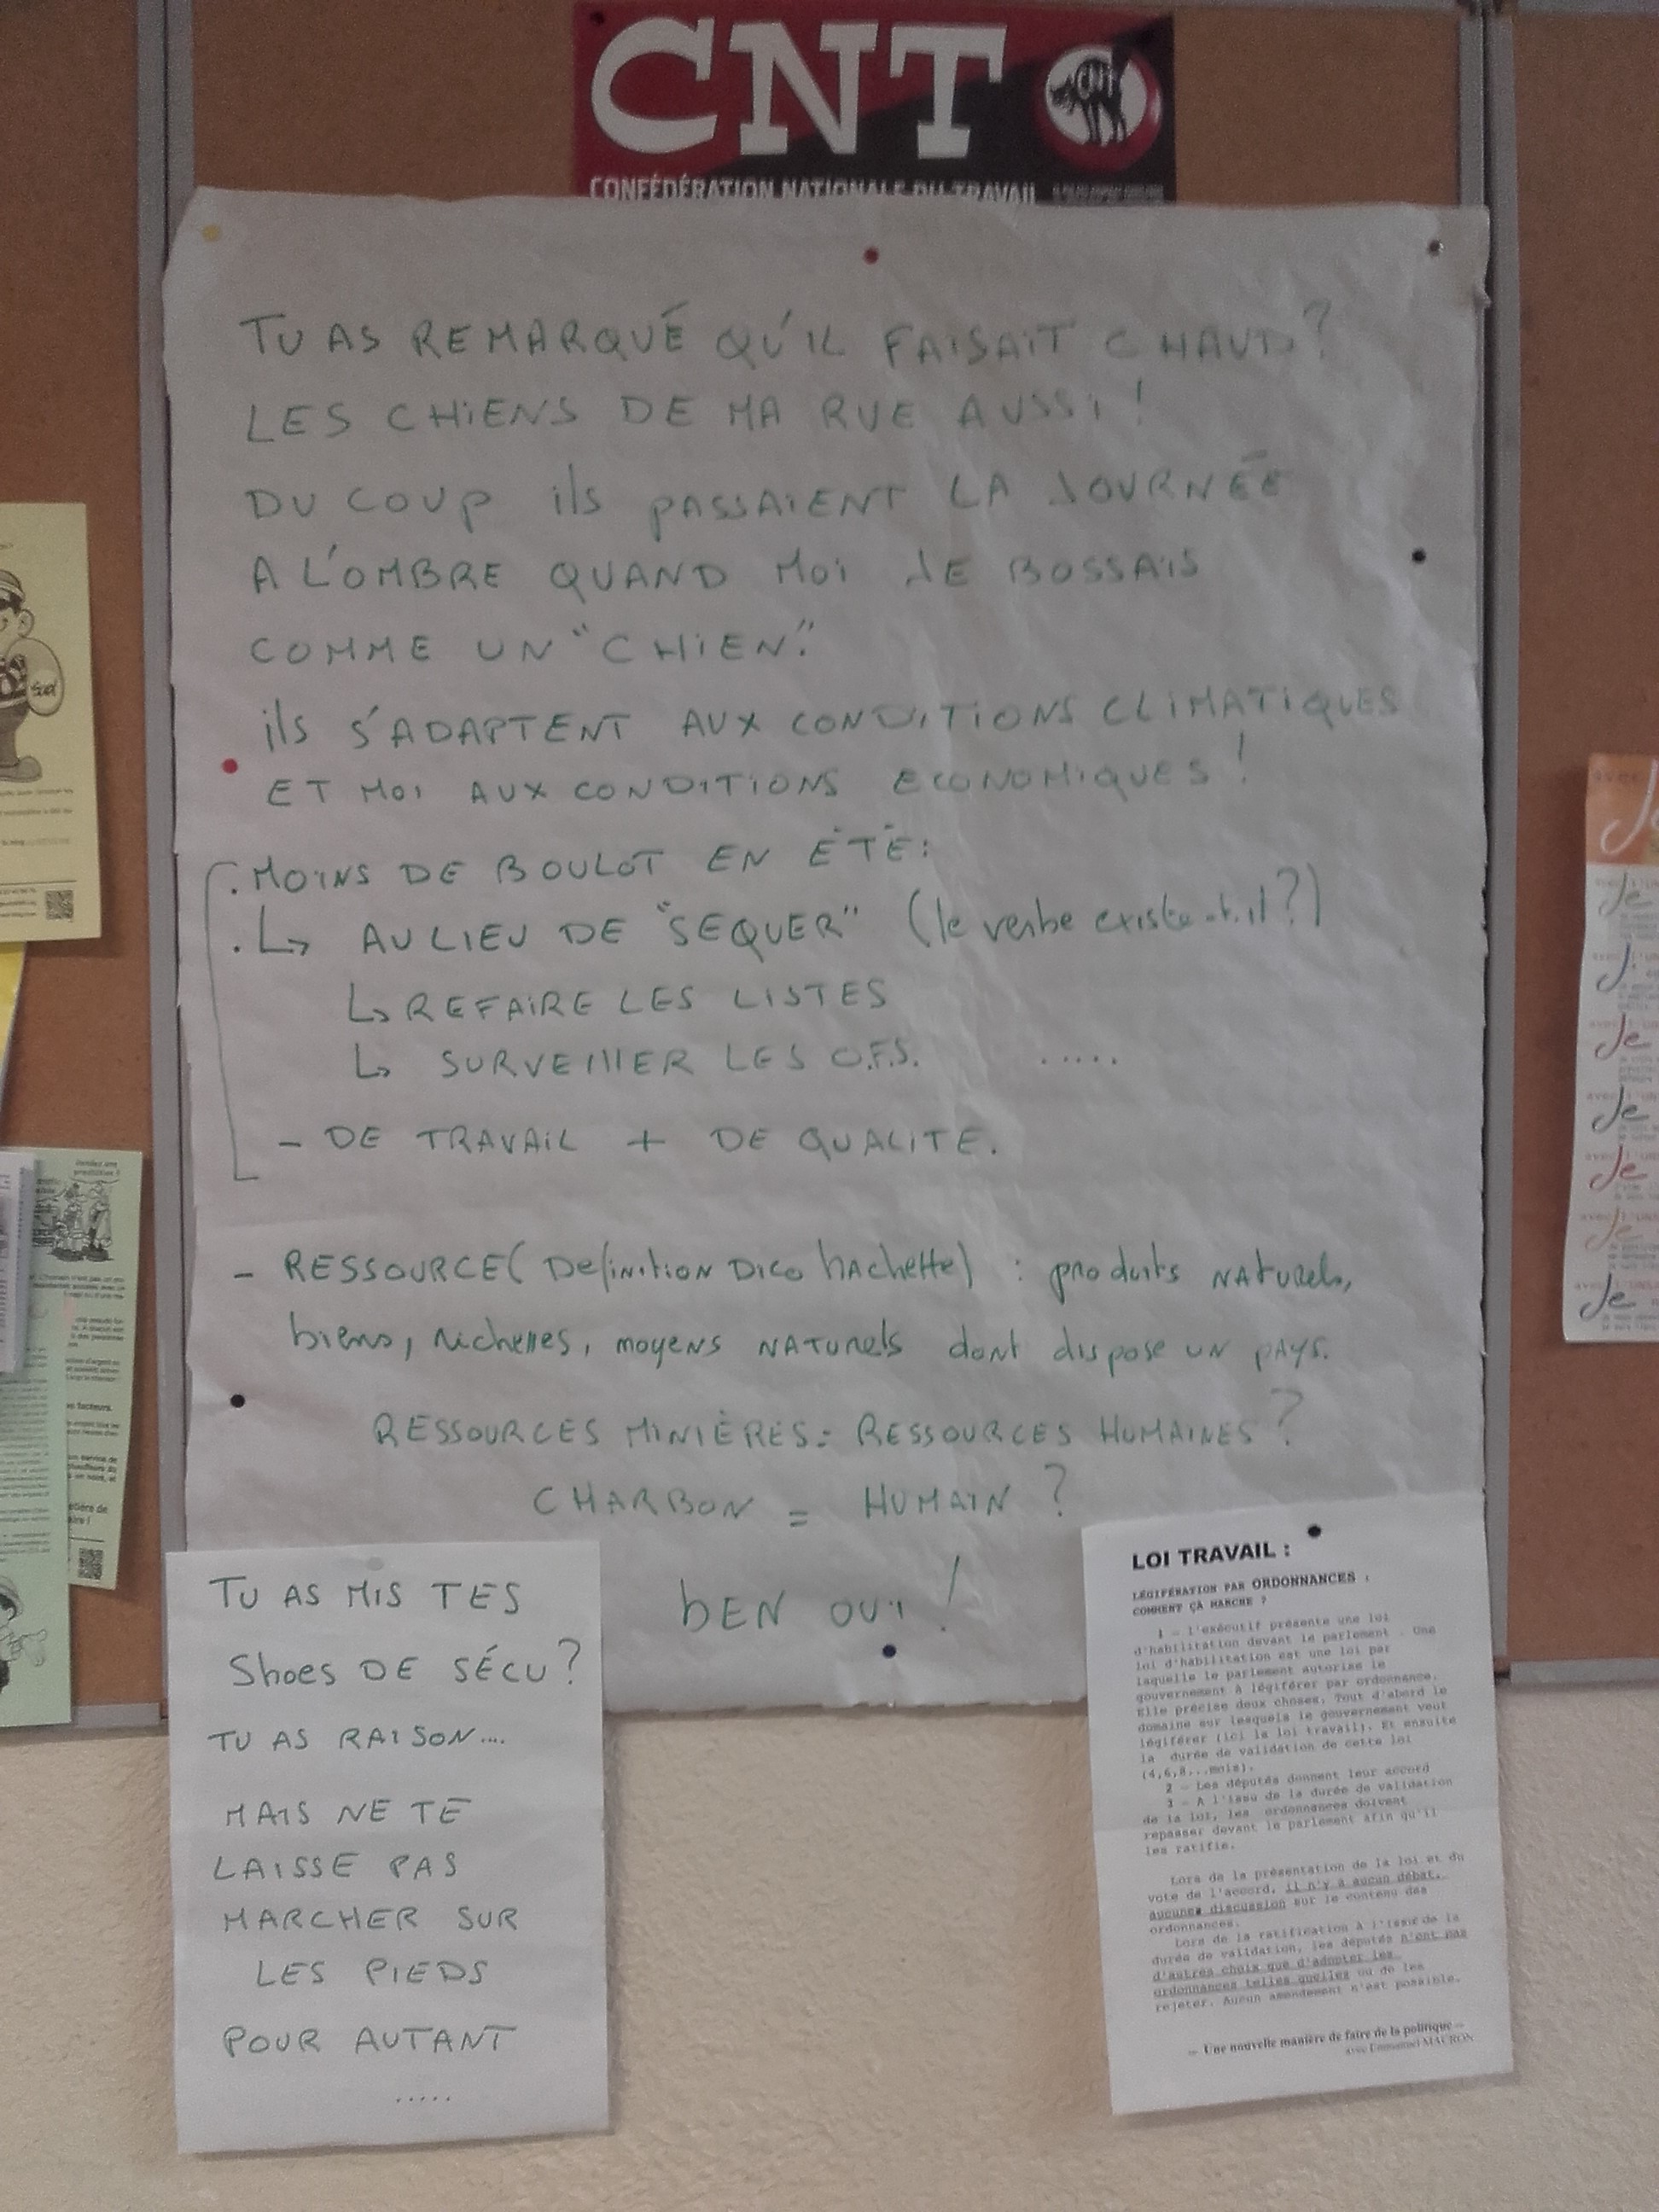 CNT
CNT
CONFÉDÉRATION NATIONALE DU TRAVAIL
TU AS REMARQUÉ QU'IL FAISAIT CHAUD?
LES CHIENS DE MA RUE AUSSI!
DU COUP ils PASSAIENT LA JOURNÉE
A L'OMBRE QUAND MOI JE BOSSAIS
COMME UN "CHIEN".
ils S'ADAPTENT AUX CONDITIONS CLIMATIQUES
ET MOI AUX CONDITIONS ECONOMIQUES!
. MOINS DE BOULOT EN ÉTÉ:
. ↳ AU LIEU DE "SEQUER" (le verbe existe-t-il?)
↳ REFAIRE LES LISTES
↳ SURVEIllER LES O.F.S. .....
- DE TRAVAIL + DE QUALITE.
- RESSOURCE (Definition Dico hachette) : produits NATURELS,
biens, richesses, moyens NATURELS dont dispose UN PAYS.
RESSOURCES MINIÈRES = RESSOURCES HUMAINES?
CHARBON = HUMAIN?
bEN OUI!
TU AS MIS TES
Shoes DE SÉCU?
TU AS RAISON....
MAIS NE TE
LAISSE PAS
MARCHER SUR
LES PIEDS
POUR AUTANT
.....
LOI TRAVAIL :
LÉGIFÉRATION PAR ORDONNANCES :
COMMENT ÇA MARCHE ?
1 - l'exécutif présente une loi
d'habilitation devant le parlement . Une
loi d'habilitation est une loi par
laquelle le parlement autorise le
gouvernement à légiférer par ordonnance.
Elle précise deux choses. Tout d'abord le
domaine sur lesquels le gouvernement veut
légiférer (ici la loi travail). Et ensuite
la durée de validation de cette loi
(4,6,8...mois).
2 - Les députés donnent leur accord
3 - A l'issu de la durée de validation
de la loi, les ordonnances doivent
repasser devant le parlement afin qu'il
les ratifie.
Lors de la présentation de la loi et du
vote de l'accord, il n'y a aucun débat,
aucune discussion sur le contenu des
ordonnances.
Lors de la ratification à l'issue de la
durée de validation, les députés n'ont pas
d'autres choix que d'adopter les
ordonnances telles quelles ou de les
rejeter. Aucun amendement n'est possible.
— Une nouvelle manière de faire de la politique —
avec Emmanuel MACRON
Je
Je
J'
Je
Je
Je
Je
Je